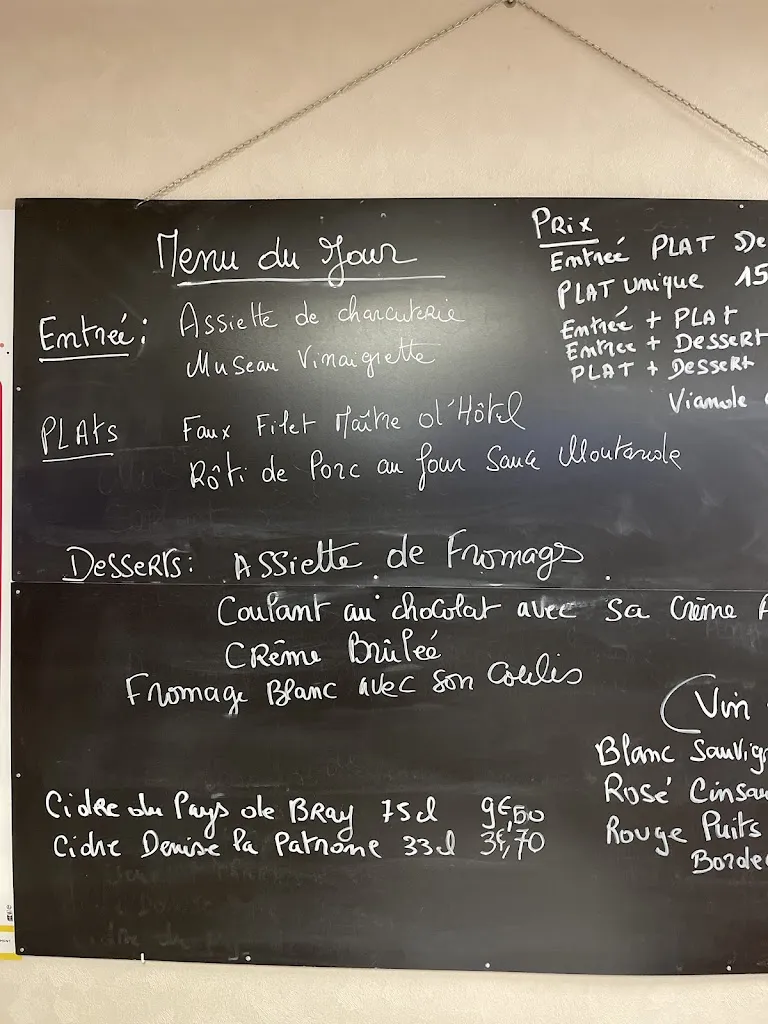 Menu du Jour
Entreé: Assiette de charcuterie
Museau Vinaigrette
PLAts Faux Filet Maître d'Hôtel
Rôti de Porc au four Sauce Moutarde
Desserts: Assiette de Fromages
Coulant au chocolat avec sa Crème
CRême Brûleé
Fromage Blanc avec son Coulis
Cidre du Pays de BRay 75cl 9€,50
Cidre Denise la Patronne 33cl 3€,70
PRix
Entreé PLAT De
PLAT unique 15
Entreé + PLAt
Entree + Dessert
PLAT + Dessert
Viande
Vin
Blanc Sauvig
Rosé Cinsau
Rouge Puits
Borde